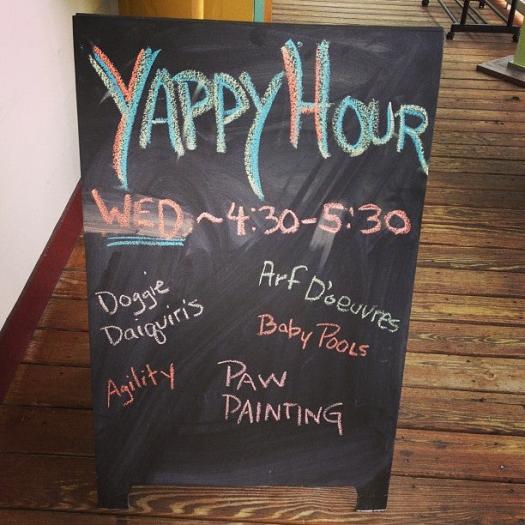 YAPPY HOUR
WED ~ 4:30-5:30
Doggie
Daiquiris
Arf D'oeuvres
Baby Pools
Agility
PAW
PAINTING